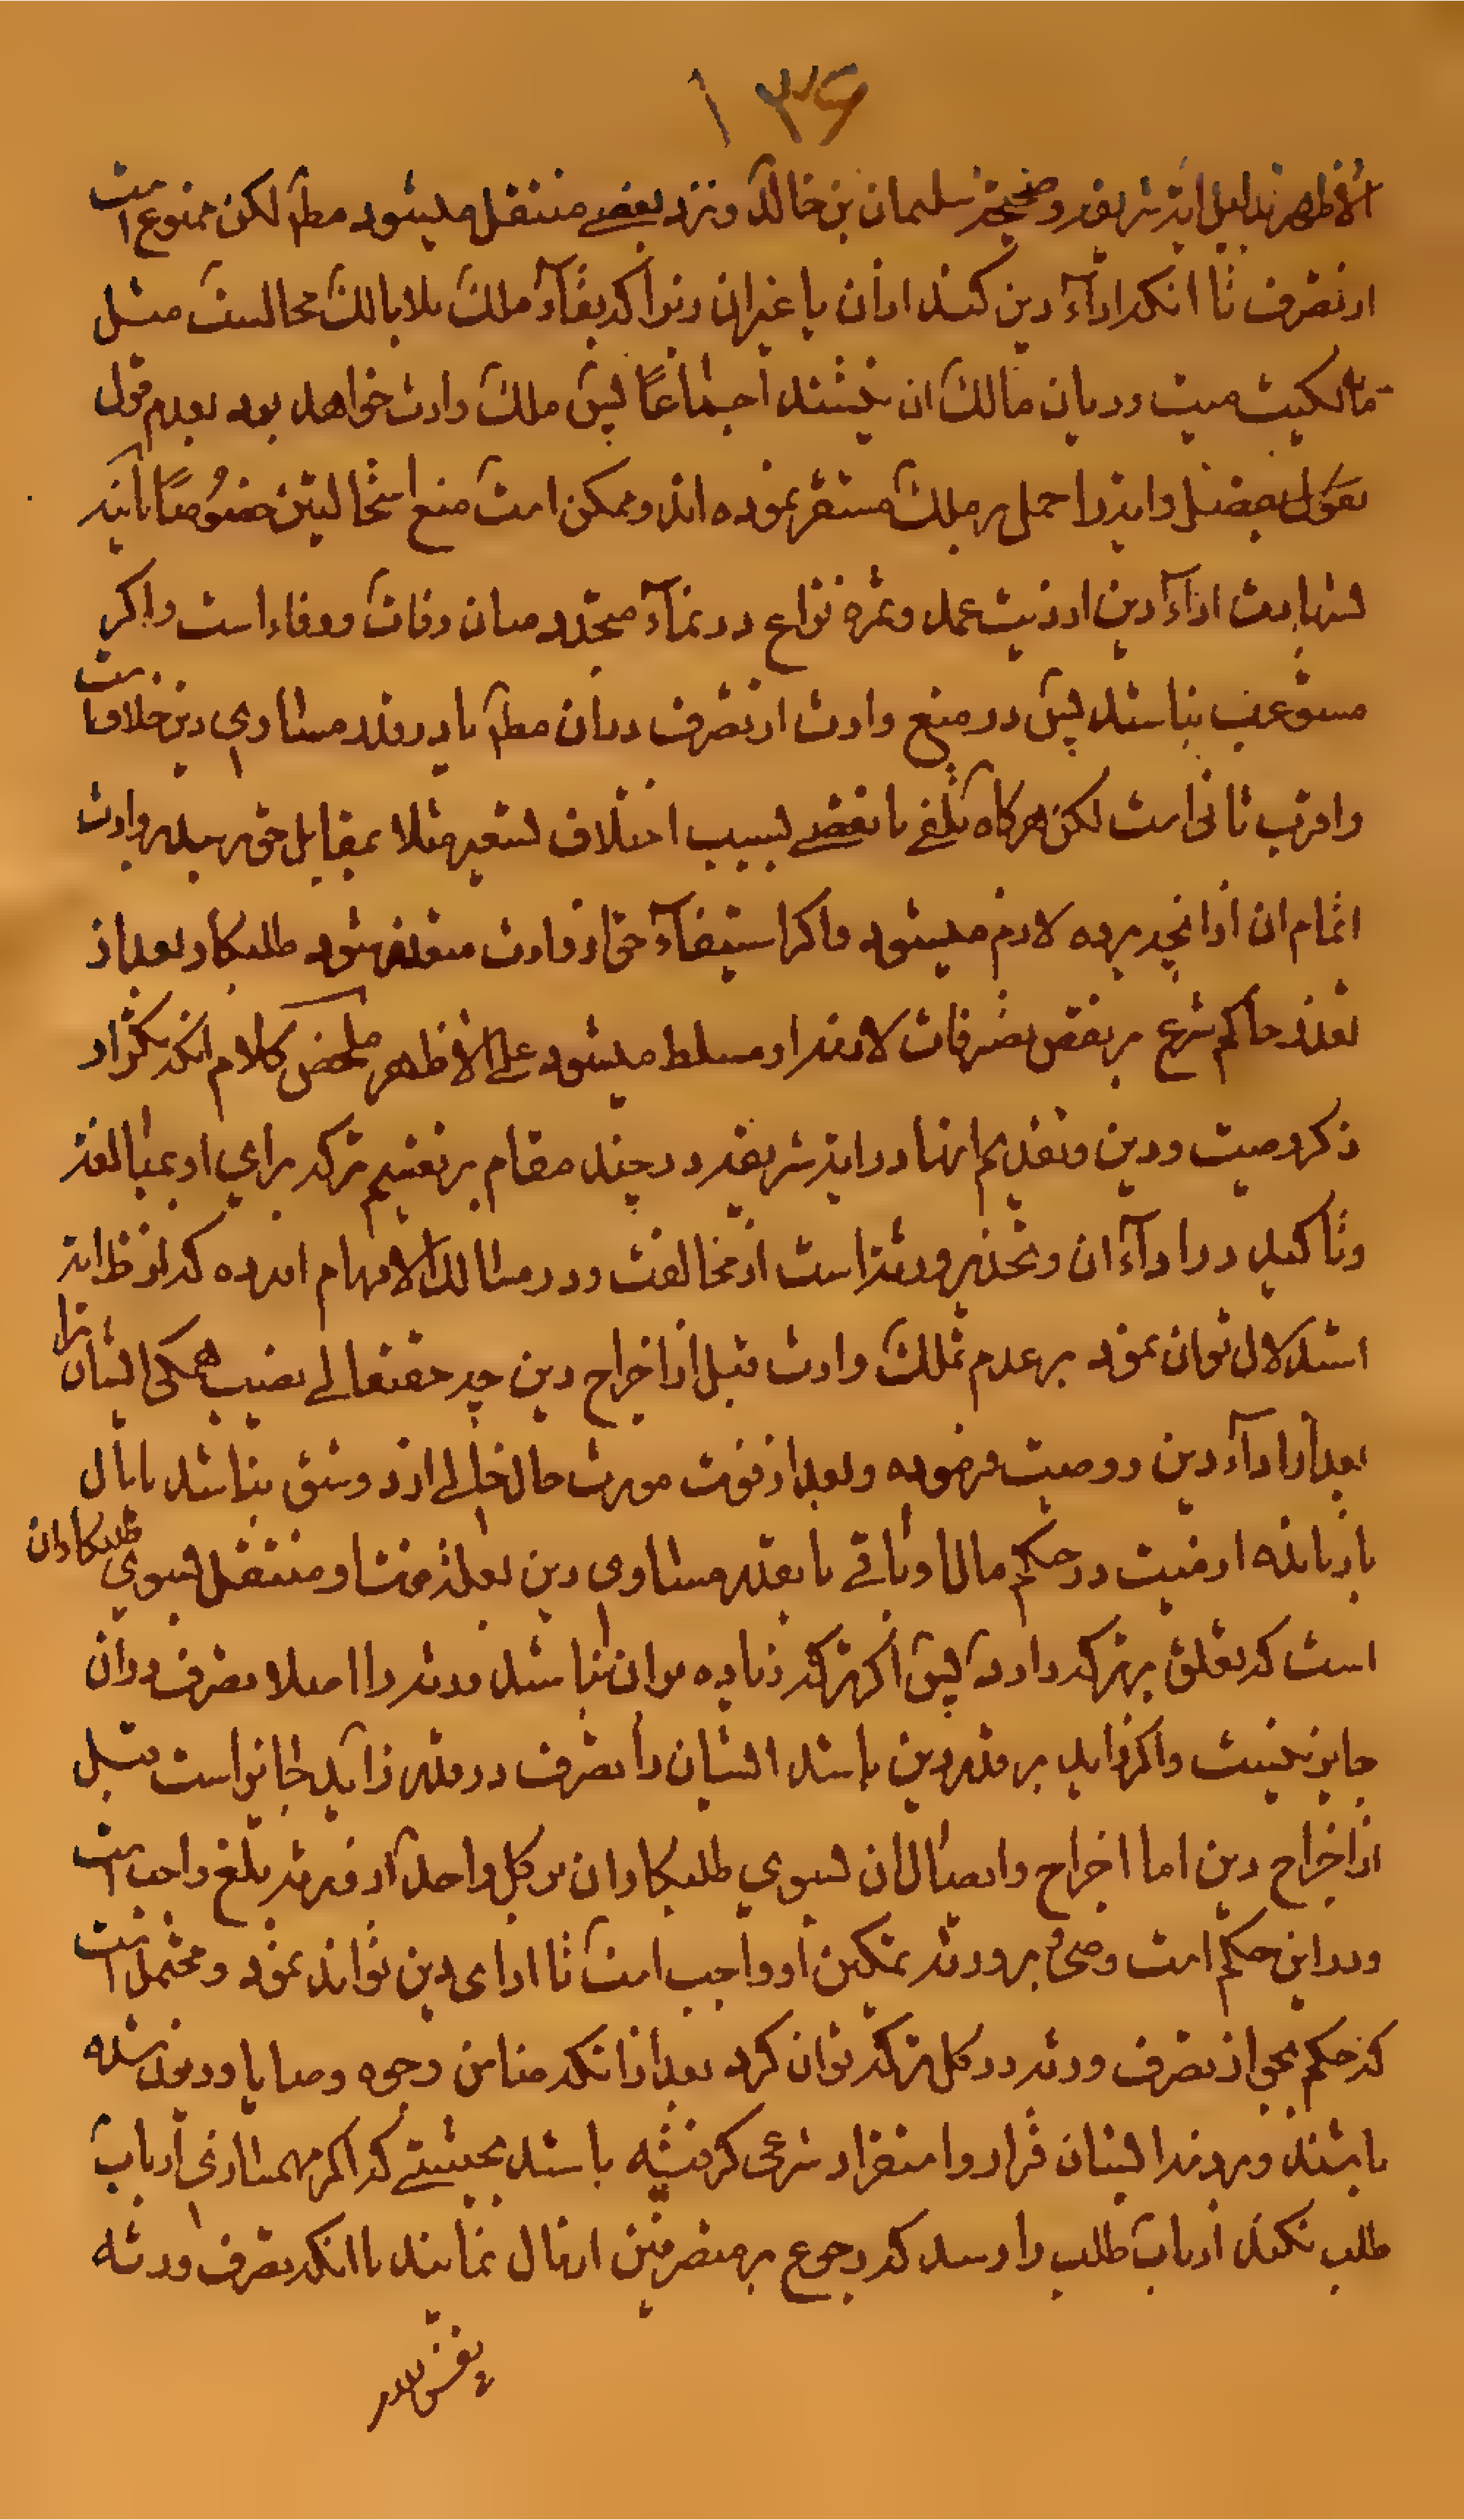 ۱۳۶
الأظهر بدلیل ایه شریفه و صحیحه سلیمان بن خالد و نزد بعضے منتقل میشود مطم لکن ممنوع است
از تصرف تا انکه اداء دین کند از ان یا غیر ان زیرا که بقاء ملک بلا مالک محالست مثل
مالکیت میت و دیان مالک ان نیستند اجماعًا پس ملک وارث خواهد بود بعدم قول
بفصل و ایه را حمل بر ملک مستقر نموده اند و ممکن است منع استحالیتن خصوصًا باینه
اداء دین از دیت عمد و ثمره نزاع در نماء متجدد میان وفات و وفاء است و اکر
مستوعب نباشد پس در منع وارث از تصرف دران مطم یا در قدر مساوی دین خلافست
و اقرب ثانی است لکن هرکاه تلفے یا نقصے بسبب اختلاف تسعیر مثلا بمقابل حق رسد بر وارث
اتمام ان از انچه برده لازم میشود و اکر استیفاء حق از وارث متعذر شود طلبکار بعد از
تعذر حاکم شرع بر نقض تصرفات لازمه او مسلط میشود علی الاظهر ملخص کلام انکه تکرار
ذکر وصیت و دین و تقدیم انها در ایه شریفه در چند مقام بر تقسیم ترکه برای مبالغه
و تاکید در اداء ان و تحذیر ورثه است از مخالفت و در مسالک الافهام آورده که از ظ ایه
استدلال توان نمود بر عدم تملک وارث قبل از اخراج دین چه حقتعالے نصیب همکی ایشان را
بعد از اداء دین و وصیت فرموده و بعد از فوت مورث حال خالے از دو شق نباشد یا مال
باز مانده از میت در حکم مال او باقے یا بقدر مساوی دین منتقل بسوی طلبکاران
است که تعلق بترکه دارد پس اکر ترکه زیاده بر ان نباشد ورثه را اصلا تصرف دران
جایز نیست و اکر زاید بر قدر دین باشد ایشان را تصرف در قدر زاید جایز است قبل
از اخراج دین اما اخراج و ایصال ان بسوی طلبکاران بر کل واحد از ورثه بلغ واجب است
و در این حکم است وصی و بر ورثه تمکین او واجب است تا ادای دین تواند نمود و محتمل است
که حکم بجواز تصرف ورثه در کل ترکه توان کرد بعد از انکه ضامن وجوه وصایا و دیون شده
باشند و بر ذمه ایشان قرار و استقرار شرعی کرفته باشد بحیثیتے که اکر مهمسازی ارباب
طلب نکنند ارباب طلب را رسد که رجوع بر متصرفین اموال نمایند با انکه تصرف ورثه